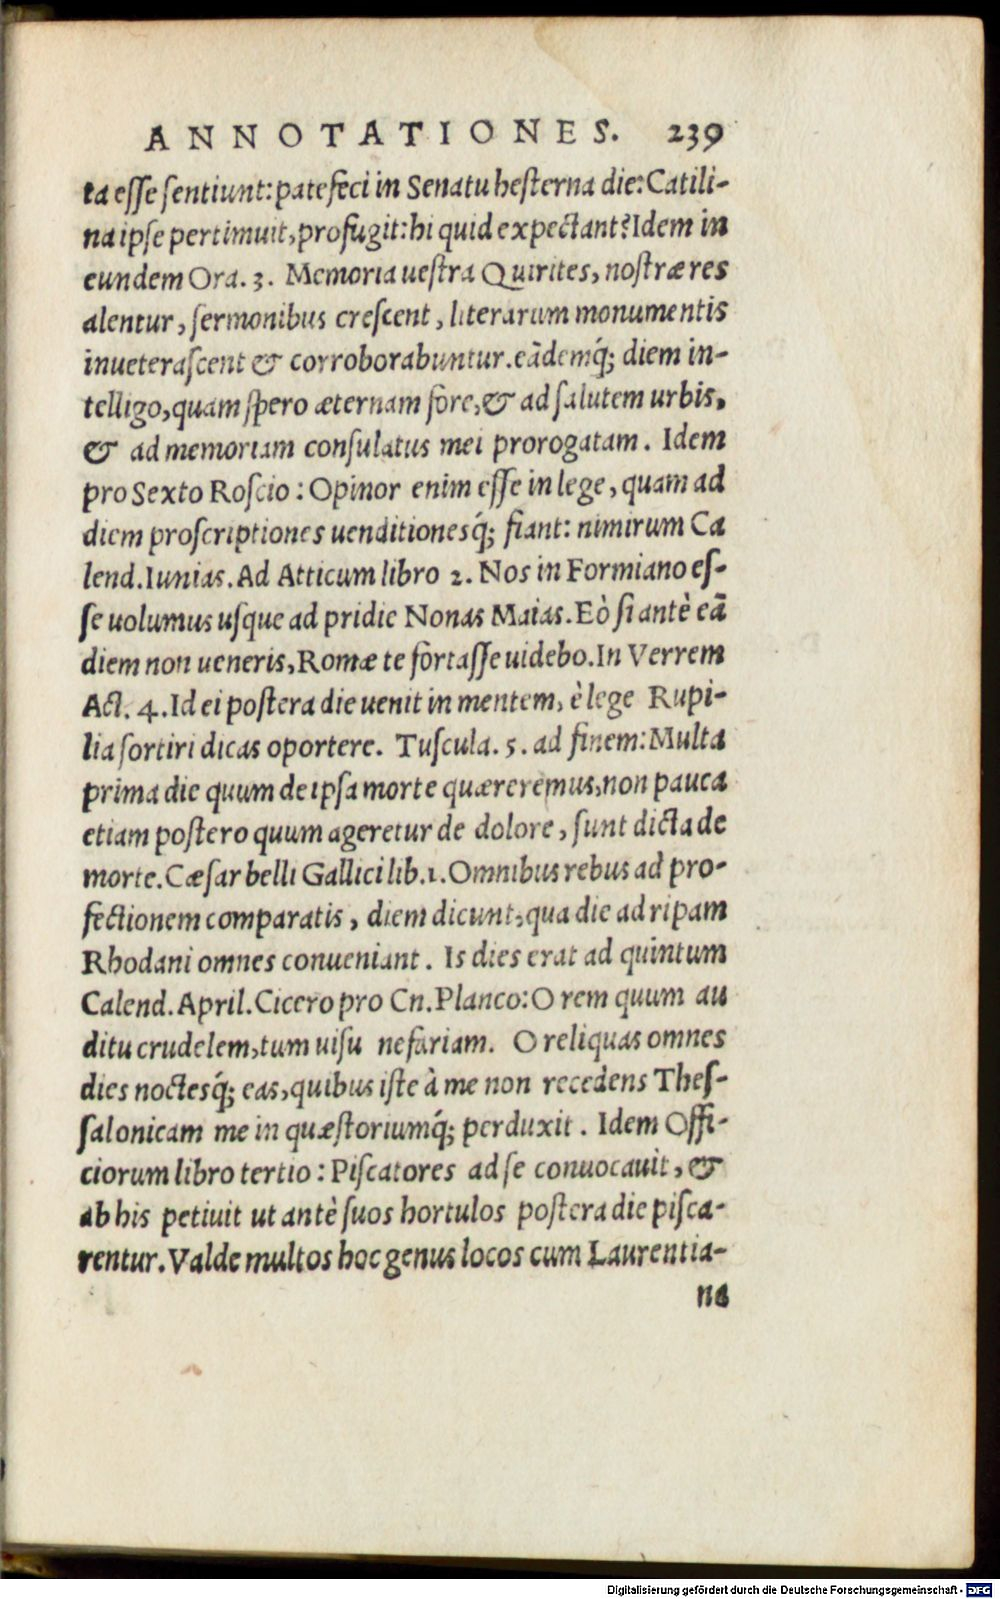 ANNOTATIONES. 239
ta esse sentiunt: patefeci in Senatu hesterna die: Catili-
na ipse pertimuit, profugit: hi quid expectant? Idem in
eundem Ora. 3. Memoria uestra Quirites, nostræ res
alentur, sermonibus crescent, literarum monumentis
inueterascent & corroborabuntur. eãdemq́; diem in-
telligo, quam spero æternam fore, & ad salutem urbis,
& ad memoriam consulatus mei prorogatam. Idem
pro Sexto Roscio: Opinor enim esse in lege, quam ad
diem proscriptiones uenditionesq́; fiant: nimirum Ca
lend. Iunias. Ad Atticum libro 2. Nos in Formiano es-
se uolumus usque ad pridie Nonas Maias. Eò si antè eã
diem non ueneris, Romæ te fortasse uidebo. In Verrem
Act. 4. Id ei postera die uenit in mentem, è lege Rupi-
lia sortiri dicas oportere. Tuscula. 5. ad finem: Multa
prima die quum de ipsa morte quæreremus, non pauca
etiam postero quum ageretur de dolore, sunt dicta de
morte. Cæsar belli Gallici lib. 1. Omnibus rebus ad pro-
fectionem comparatis, diem dicunt, qua die ad ripam
Rhodani omnes conueniant. Is dies erat ad quintum
Calend. April. Cicero pro Cn. Planco: O rem quum au
ditu crudelem, tum uisu nefariam. O reliquas omnes
dies noctesq́; eas, quibus iste à me non recedens Thes-
salonicam me in quæstoriumq́; perduxit. Idem Offi-
ciorum libro tertio: Piscatores ad se conuocauit, &
ab his petiuit ut antè suos hortulos postera die pisca-
rentur. Valde multos hoc genus locos cum Laurentia-
na
Digitalisierung gefördert durch die Deutsche Forschungsgemeinschaft - DFG